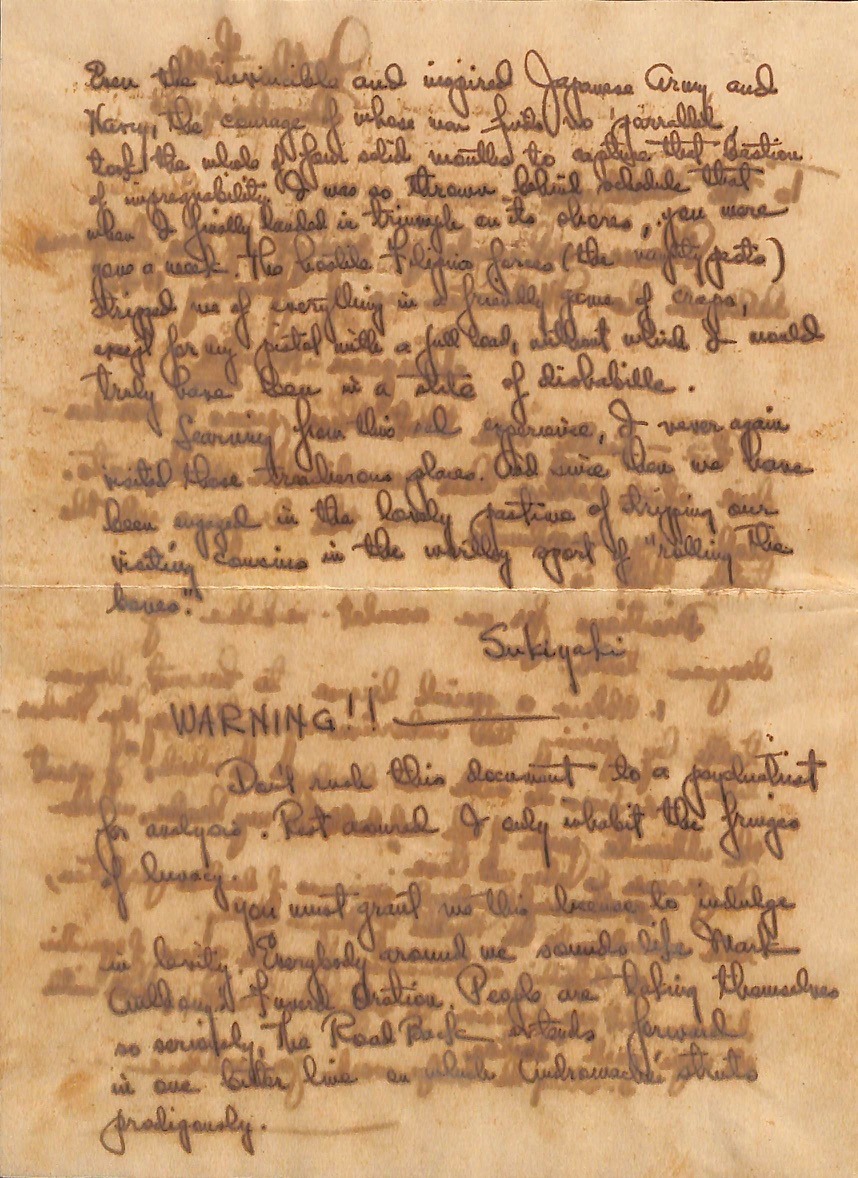 Even the invincible and inspired Japanese Army and
Navy, the courage of whose men finds no parrallel,
took the whole of four solid months to capture that bastion
of impregnability. I was so thrown behind schedule that
when I finally landed in triumph on its shores, you were
gone a week. The hostile Filipino forces (the naughty pests)
stripped me of everything in a friendly game of craps,
except for my pistol with a full load, without which I would
truly have been in a state of dishabille.
Learning from this sad experience, I never again
visited those treacherous places. And since then we have
been engaged in the lovely pastime of stripping our
visiting cousins in the worldly sport of "rolling the
bones".
Sukiyaki
WARNING!!
Don't rush this document to a psychiatrist
for analysis. Rest assured I only inhabit the fringes
of lunacy.
You must grant me this license to indulge
in levity. Everybody around me sounds like Mark
Funeral Oration. People are taking themselves
so seriously, The Road Back extends forward
in one bitter line on which struts
prodigously.